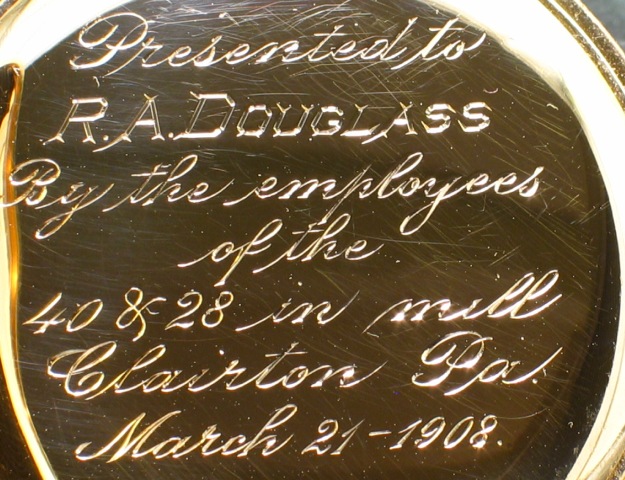 Presented to
R.A. DOUGLASS
By the employees
of the
40 & 28 in mill
Clairton Pa.
March 21-1908.